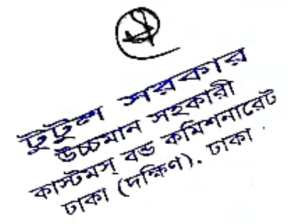 টুটুল সরকার
উচ্চমান সহকারী
কাস্টমস্ বন্ড কমিশনারেট
ঢাকা (দক্ষিণ). ঢাকা